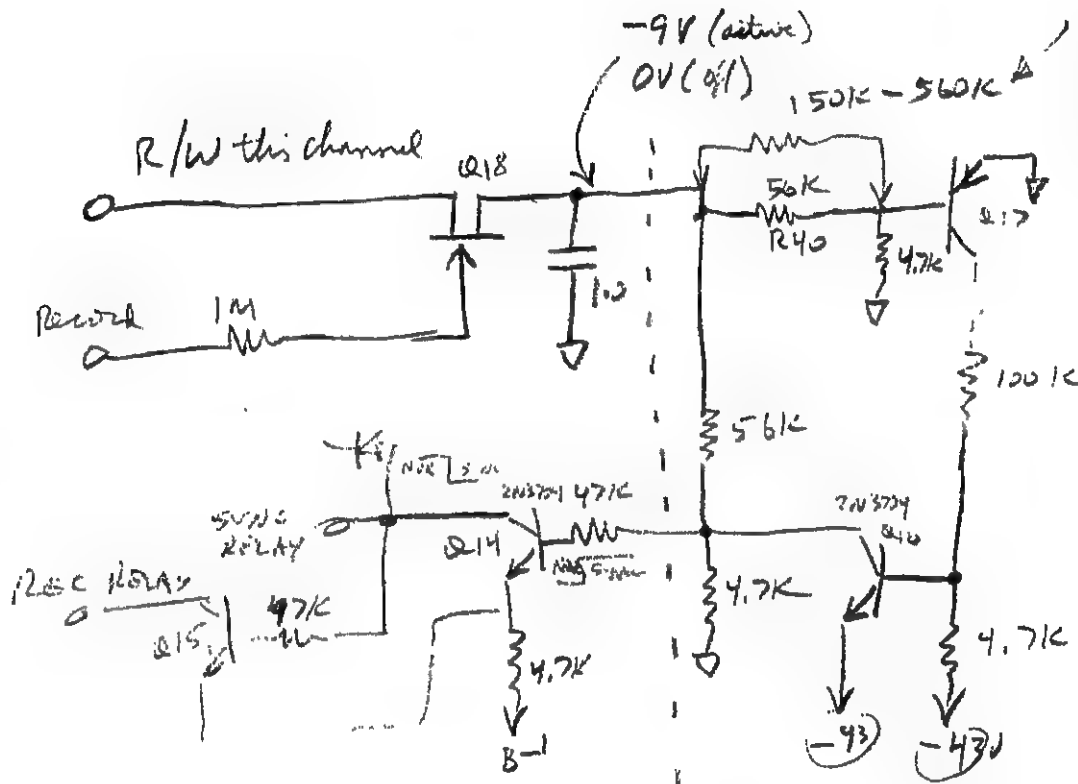 -9V (active)
0V (off)
150K - 560K
R/W this channel
Q18
56K
R40
Q17
4.7K
1.0
Record
1M
100K
56K
SYNC
RELAY
2N3704
47K
Q14
2N3704
REC RELAY
47K
Q15
4.7K
4.7K
4.7K
B-1
-43
-43V